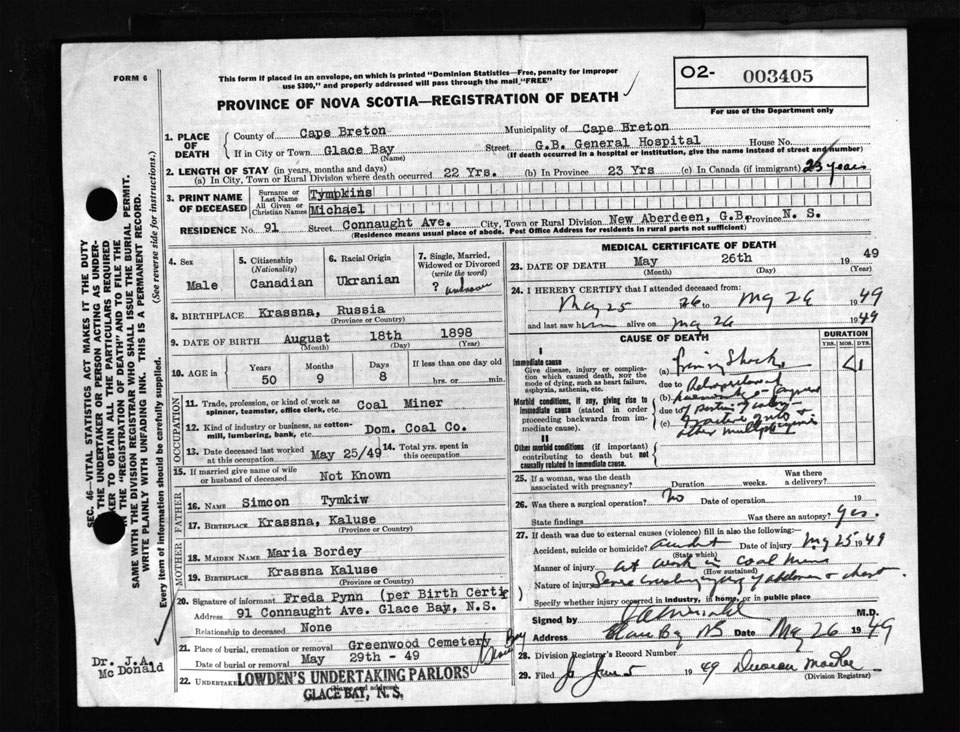 FORM 6
This form if placed in an envelope, on which is printed "Dominion Statistics—Free, penalty for improper
use $300," and properly addressed will pass through the mail, "FREE"
PROVINCE OF NOVA SCOTIA—REGISTRATION OF DEATH
O2- 003405
For use of the Department only
1. PLACE OF DEATH
County of Cape Breton Municipality of Cape Breton
If in City or Town Glace Bay Street G.B. General Hospital House No.
(Name) (If death occurred in a hospital or institution, give the name instead of street and number)
2. LENGTH OF STAY (in years, months and days)
(a) In City, Town or Rural Division where death occurred 22 Yrs. (b) In Province 23 Yrs (c) In Canada (if immigrant) 23 years
3. PRINT NAME OF DECEASED
Surname or Last Name Tympkins
All Given or Christian Names Michael
RESIDENCE No. 91 Street Connaught Ave. City, Town or Rural Division New Aberdeen, G.B. Province N. S.
(Residence means usual place of abode. Post Office Address for residents in rural parts not sufficient)
4. Sex Male
5. Citizenship (Nationality) Canadian
6. Racial Origin Ukranian
7. Single, Married, Widowed or Divorced (write the word) ? unknown
8. BIRTHPLACE Krassna, Russia
(Province or Country)
9. DATE OF BIRTH August 18th 1898
(Month) (Day) (Year)
10. AGE in Years Months Days If less than one day old
50 9 8 hrs. or min.
OCCUPATION
11. Trade, profession, or kind of work as spinner, teamster, office clerk, etc. Coal Miner
12. Kind of industry or business, as cotton-mill, lumbering, bank, etc. Dom. Coal Co.
13. Date deceased last worked at this occupation May 25/49 14. Total yrs. spent in this occupation
15. If married give name of wife or husband of deceased Not Known
FATHER
16. Name Simcon Tymkiw
17. Birthplace Krassna, Kaluse
(Province or Country)
MOTHER
18. Maiden Name Maria Bordey
19. Birthplace Krassna Kaluse
(Province or Country)
20. Signature of informant Freda Pynn (per Birth Certic )
Address 91 Connaught Ave. Glace Bay, N.S.
Relationship to deceased None
21. Place of burial, cremation or removal Greenwood Cemetery Glace Bay
Date of burial or removal May 29th - 49
22. Undertaker LOWDEN'S UNDERTAKING PARLORS
GLACE BAY, N. S.
MEDICAL CERTIFICATE OF DEATH
23. DATE OF DEATH May 26th 19 49
(Month) (Day) (Year)
24. I HEREBY CERTIFY that I attended deceased from:
May 25 to May 26 1949
and last saw him alive on May 26 1949
CAUSE OF DEATH
DURATION
YRS. MOS. DYS.
I
Immediate cause
Give disease, injury or complication which caused death, NOT the mode of dying, such as heart failure, asphyxia, asthenia, etc.
Morbid conditions, if any, giving rise to immediate cause (stated in order proceeding backwards from immediate cause).
II
Other morbid conditions (if important) contributing to death but not causally related to immediate cause.
(a) Shock <1
due to Retroperitoneal
(b)
due to
(c)
other multiple injuries
25. If a woman, was the death associated with pregnancy? Duration weeks. Was there a delivery?
26. Was there a surgical operation? No Date of operation 19
State findings Was there an autopsy? Yes.
27. If death was due to external causes (violence) fill in also the following:—
Accident, suicide or homicide? accident Date of injury May 25 1949
(State which)
Manner of injury at work in coal mine
(How sustained)
Nature of injury Severe crushing injury of abdomen & chest.
Specify whether injury occurred in industry, in home, or in public place
Signed by M.D.
Address Glace Bay NS Date May 26 1949
28. Division Registrar's Record Number
29. Filed June 5 1949 Duncan
(Division Registrar)
SEC. 46—VITAL STATISTICS ACT MAKES IT THE DUTY
THE UNDERTAKER OR PERSON ACTING AS UNDER-
KER TO OBTAIN ALL THE PARTICULARS REQUIRED
THE "REGISTRATION OF DEATH" AND TO FILE THE
SAME WITH THE DIVISION REGISTRAR WHO SHALL ISSUE THE BURIAL PERMIT.
WRITE PLAINLY WITH UNFADING INK. THIS IS A PERMANENT RECORD.
Every item of information should be carefully supplied. (See reverse side for instructions.)
Dr. J.A.
Mc Donald